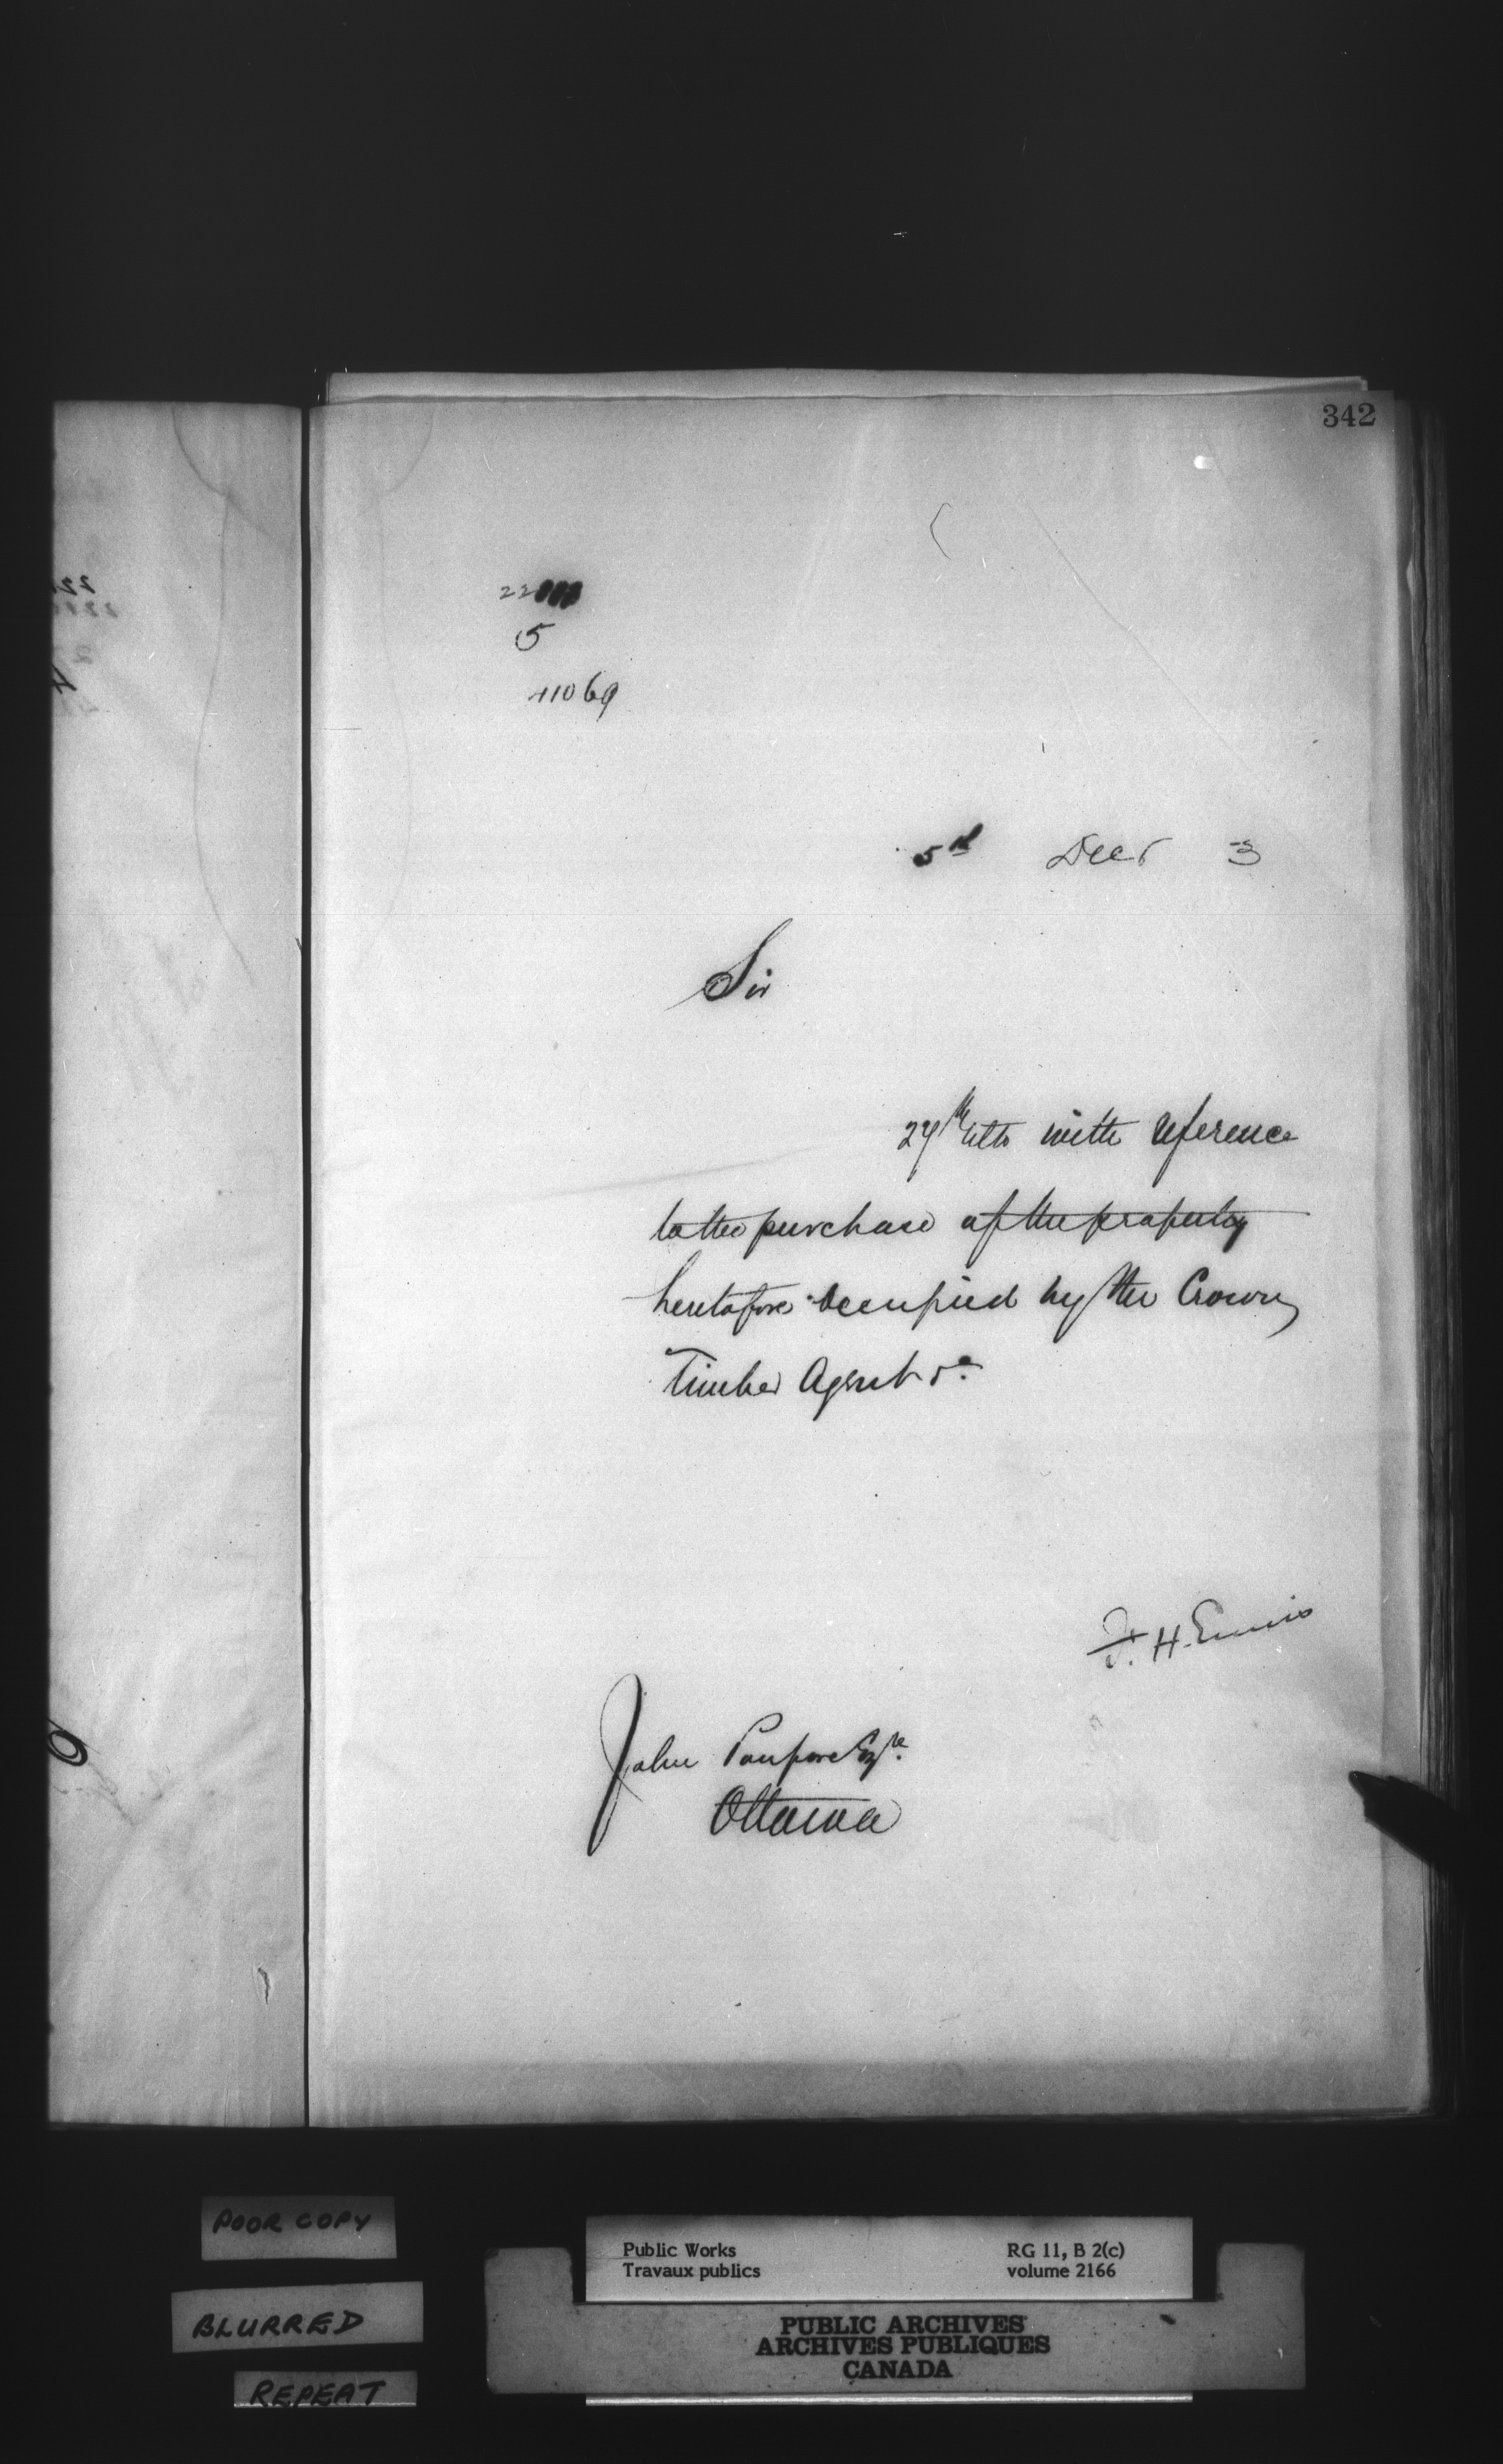 342
22
5
41069
5th Decr 3
Sir
27th Ulto with reference
to the purchase of the property
heretofore occupied by the Crown
Timber Agent &c
F. H. Ennis
John Poupore Esqre.
Ottawa
POOR COPY
BLURRED
REPEAT
Public Works
Travaux publics
RG 11, B 2(c)
volume 2166
PUBLIC ARCHIVES
ARCHIVES PUBLIQUES
CANADA